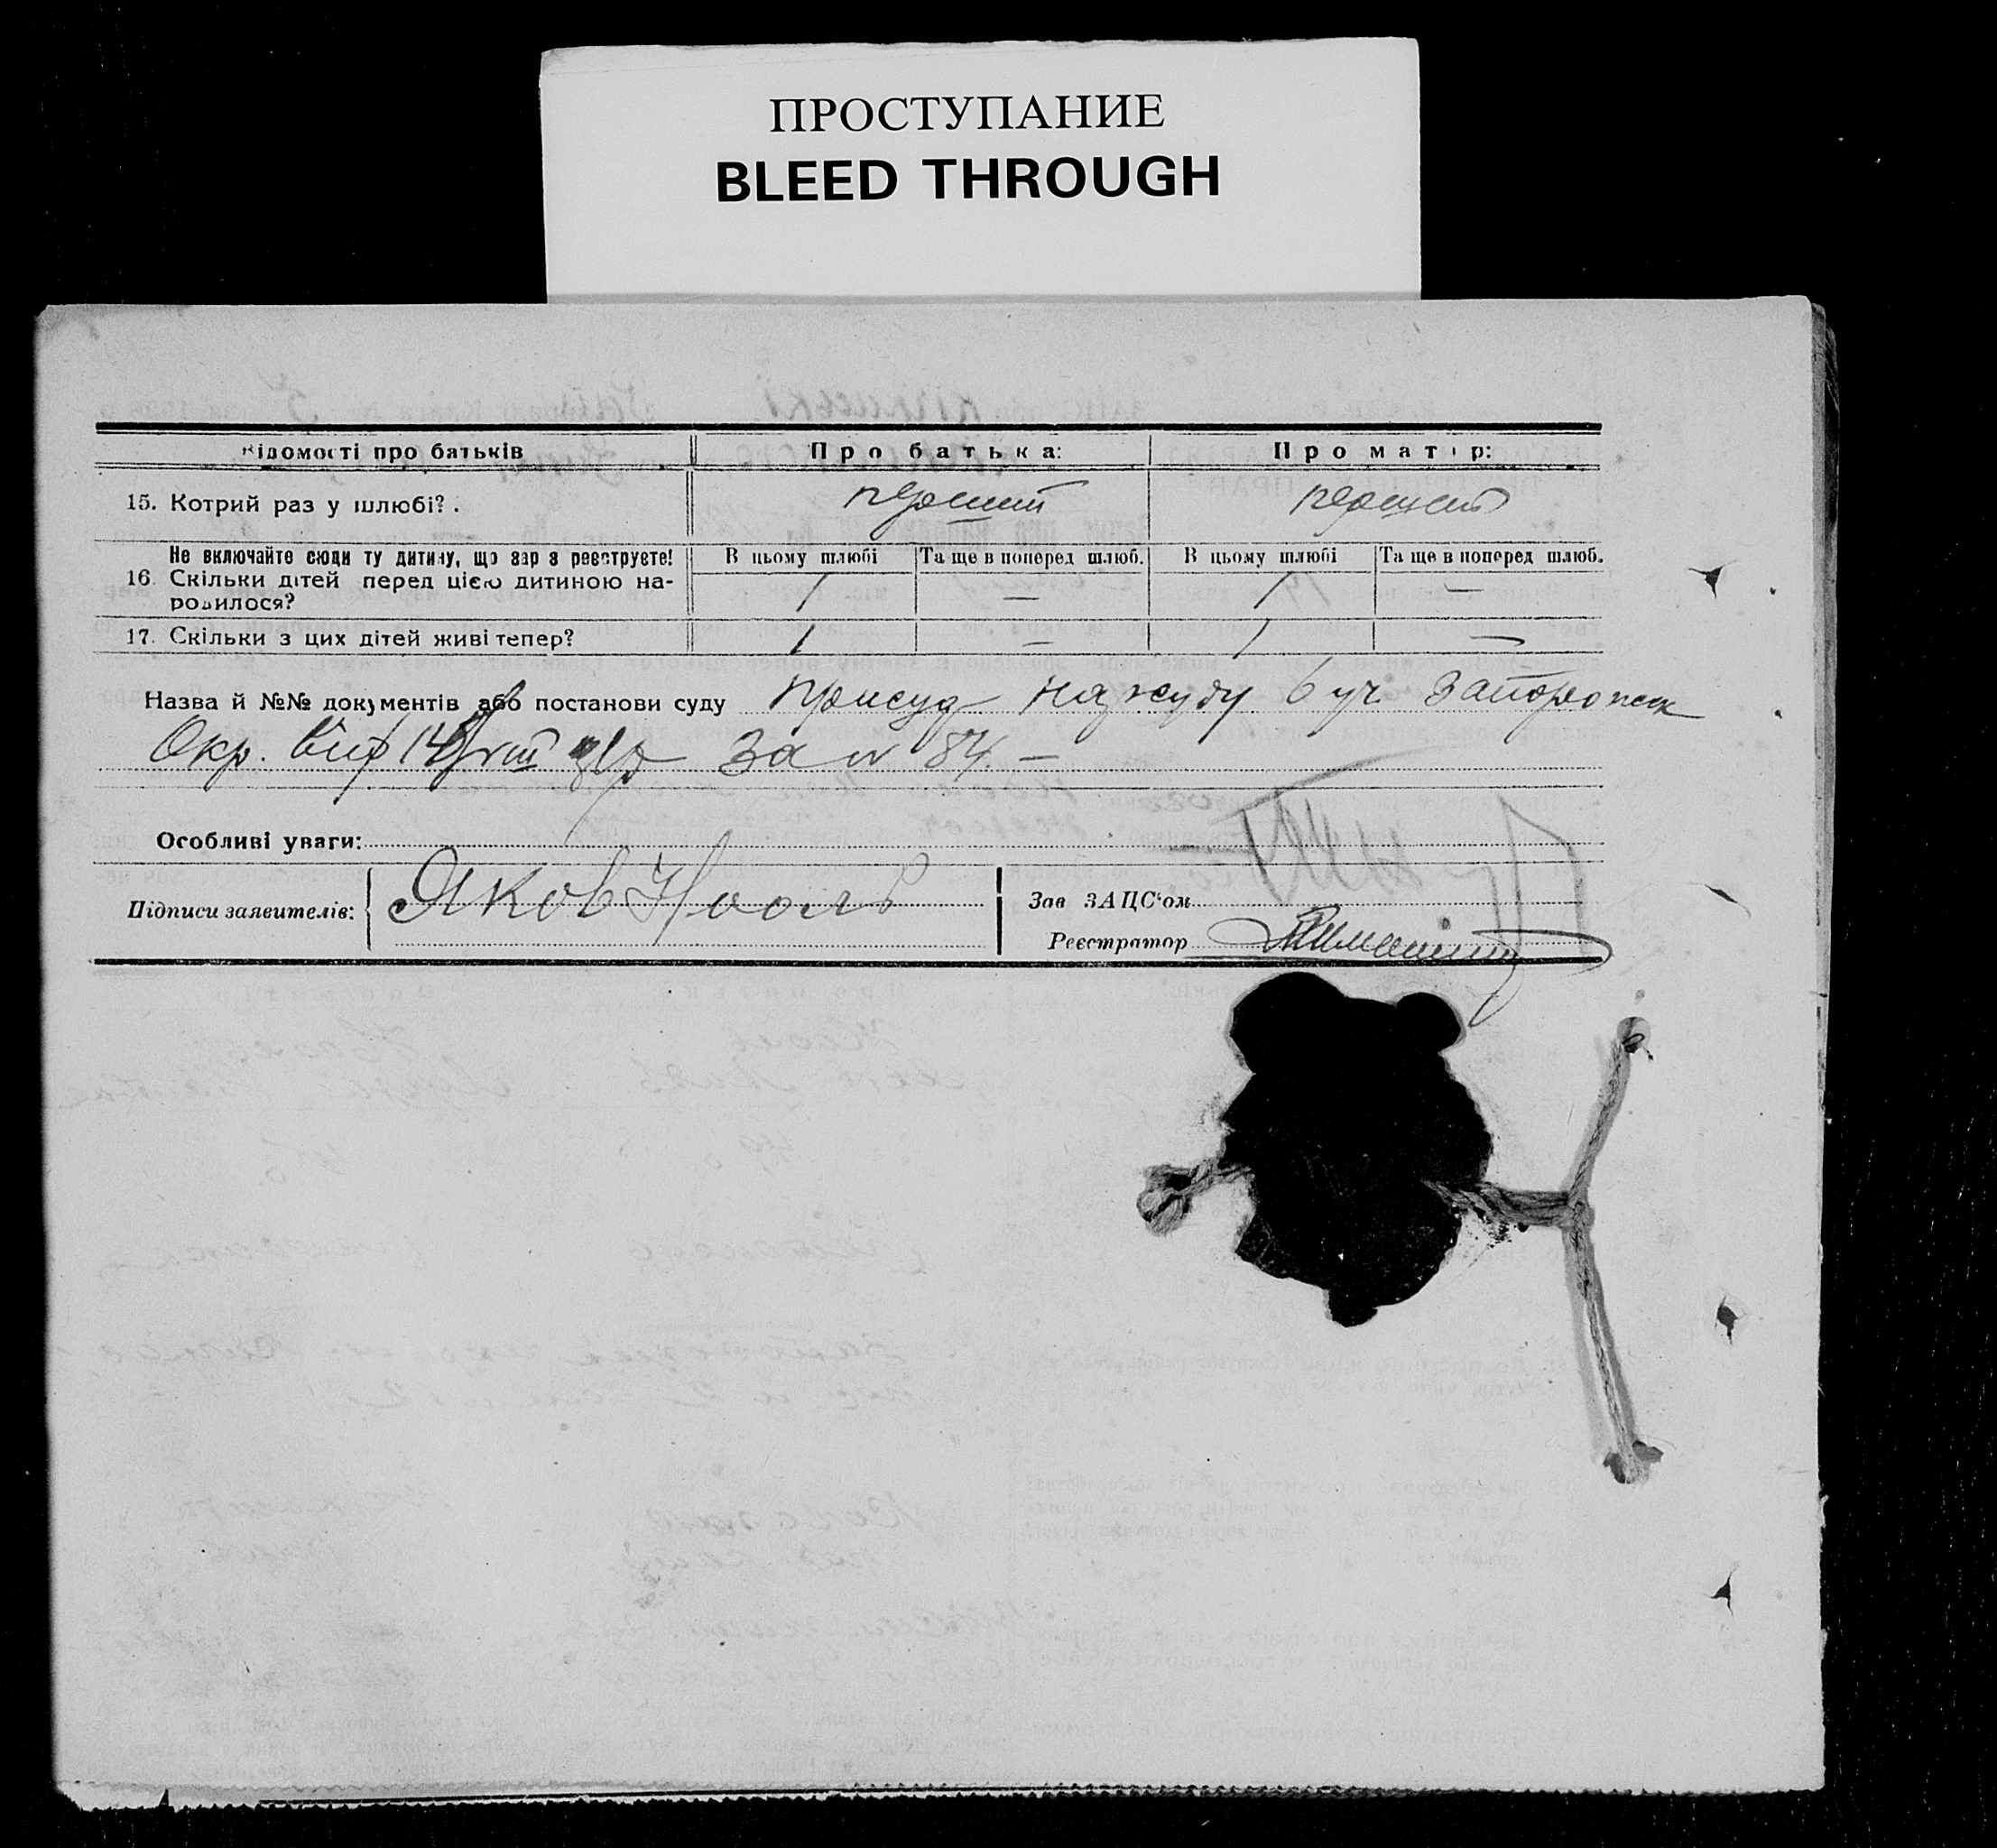 ПРОСТУПАНИЕ
BLEED THROUGH
Відомості про батьків
Про батька:
Про матір:
15. Котрий раз у шлюбі?.
перший
перший
Не включайте сюди ту дитину, що зар з реєструєте!
16. Скільки дітей перед цією дитиною на-
родилося?
В цьому шлюбі
Та ще в поперед шлюб.
В цьому шлюбі
Та ще в поперед шлюб.
1
—
1
—
17. Скільки з цих дітей живі тепер?
1
—
1
—
Назва й №№ документів або постанови суду присуд нар суду 6 уч. Запорожск
Окр. від за № 84. —
Особливі уваги:
Підписи заявителів:
Яков Нооль
Зав ЗАЦС'ом
Реєстратор